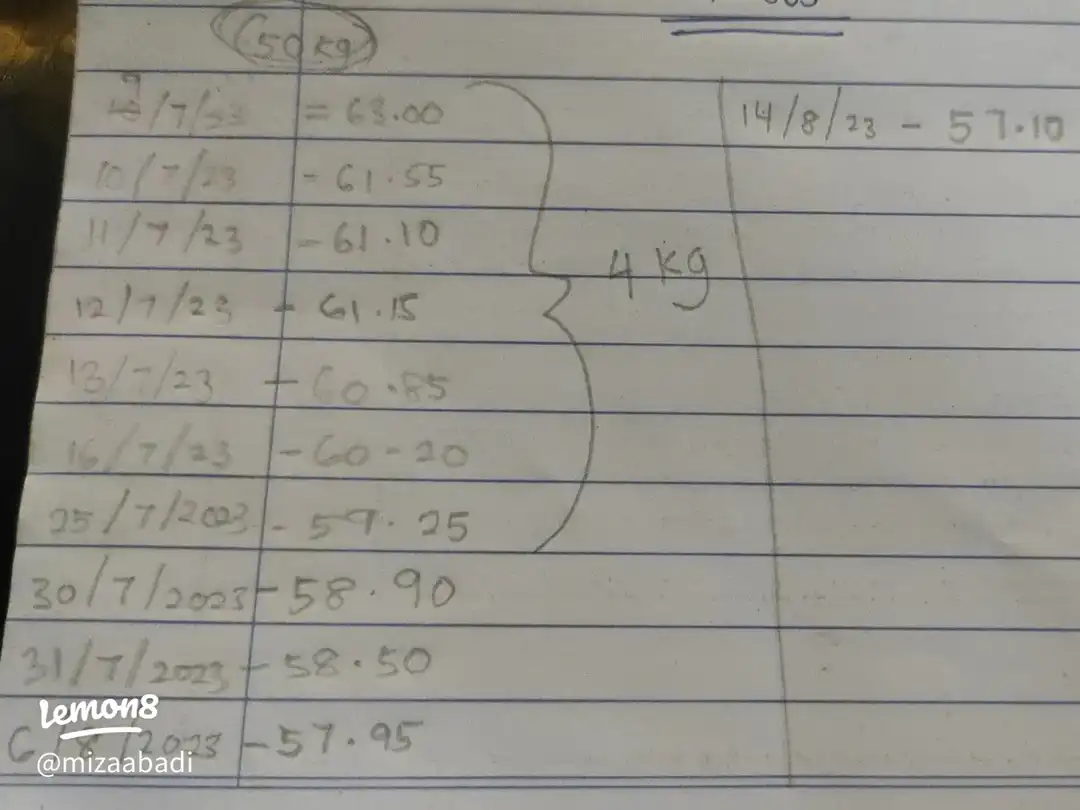 50 kg
9/7/23 = 63.00
10/7/23 - 61.55
11/7/23 - 61.10
12/7/23 - 61.15
13/7/23 - 60.85
16/7/23 - 60-20
25/7/2023 - 59.25
30/7/2023 - 58.90
31/7/2023 - 58.50
6/8/2023 - 57.95
4 kg
14/8/23 - 57.10
Lemon8
@mizaabadi